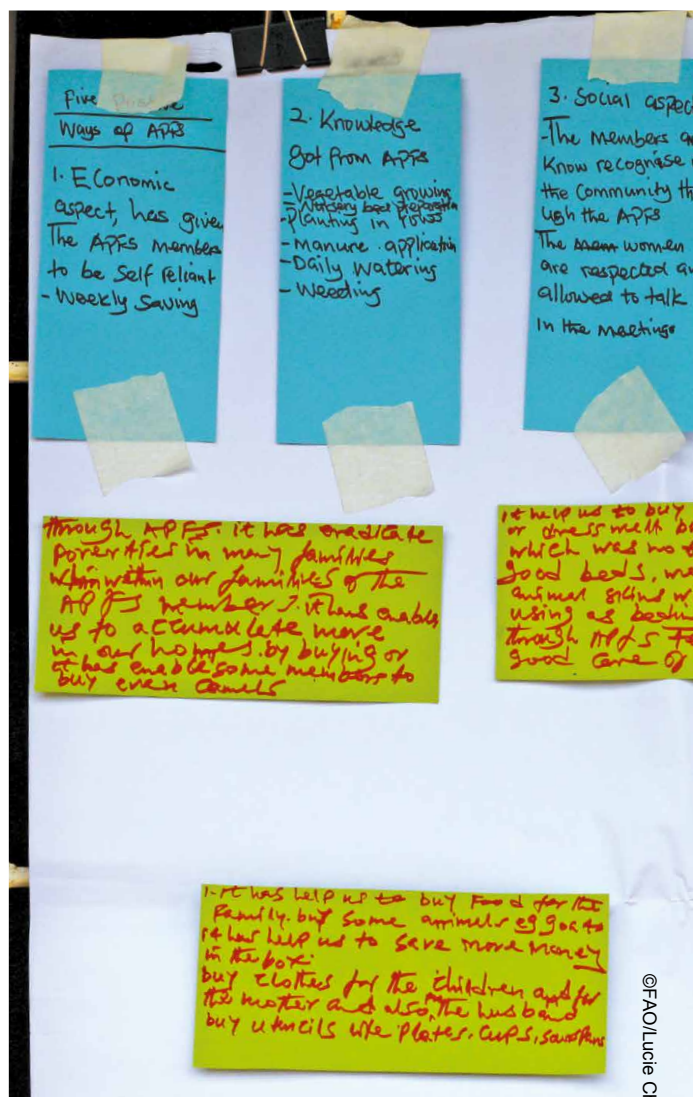 Five Positive
Ways of APFS
1. Economic
aspect, has given
The APFS members
to be Self reliant
- Weekly Saving
2. Knowledge
got from APFS
- Vegetable growing
- Nursery bed preparation
- Planting in rows
- manure application
- Daily Watering
- Weeding
3. Social aspec
- The members a
Know recognise
the Community th
ugh the APFS
The women
are respected a
allowed to talk
In the meetings
through APFS. it has eradicate
poverties in many families
within our families of the
APFS members. it has enable
us to accumulate more
in our homes. by buying or
it has enable some members to
buy even camels
it help us to buy
or dress well b
which was no
good beds, we
animal skins
using as beddin
through APFS
good care of
1. it has help us to buy Food for the
Family. buy some animals eg goats
it has help us to save more money
in the box.
buy clothes for the children and for
the mother and also the husband
buy utencils like plates, cups,
©FAO/Lucie